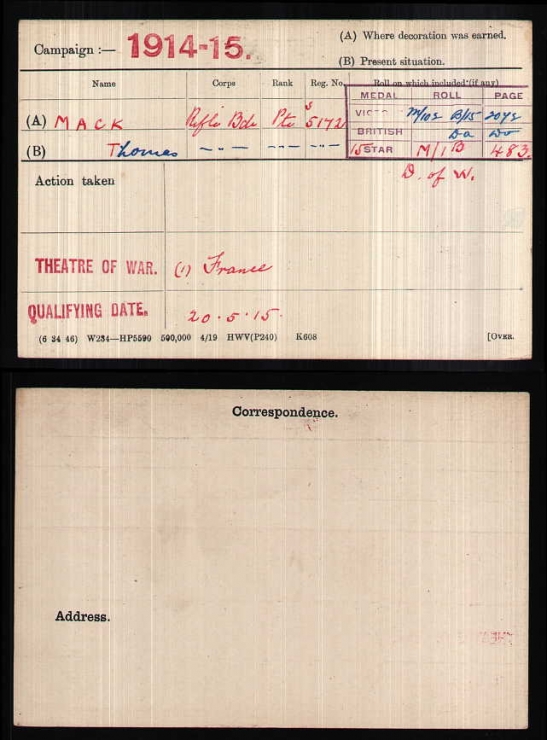 Campaign :— 1914-15.
(A) Where decoration was earned.
(B) Present situation.
Name Corps Rank Reg. No. Roll on which included (if any)
MEDAL ROLL PAGE
(A) MACK Rifle Bde Pte S 5172
VICTO M/102 B/15 2072
BRITISH Do Do
(B) Thomas —"— —"— —"—
15 STAR M/1 B 483.
Action taken
D. of W.
THEATRE OF WAR. (1) France
QUALIFYING DATE. 20.5.15.
(6 34 46) W234—HP5590 500,000 4/19 HWV(P240) K608 [OVER.
Correspondence.
Address.